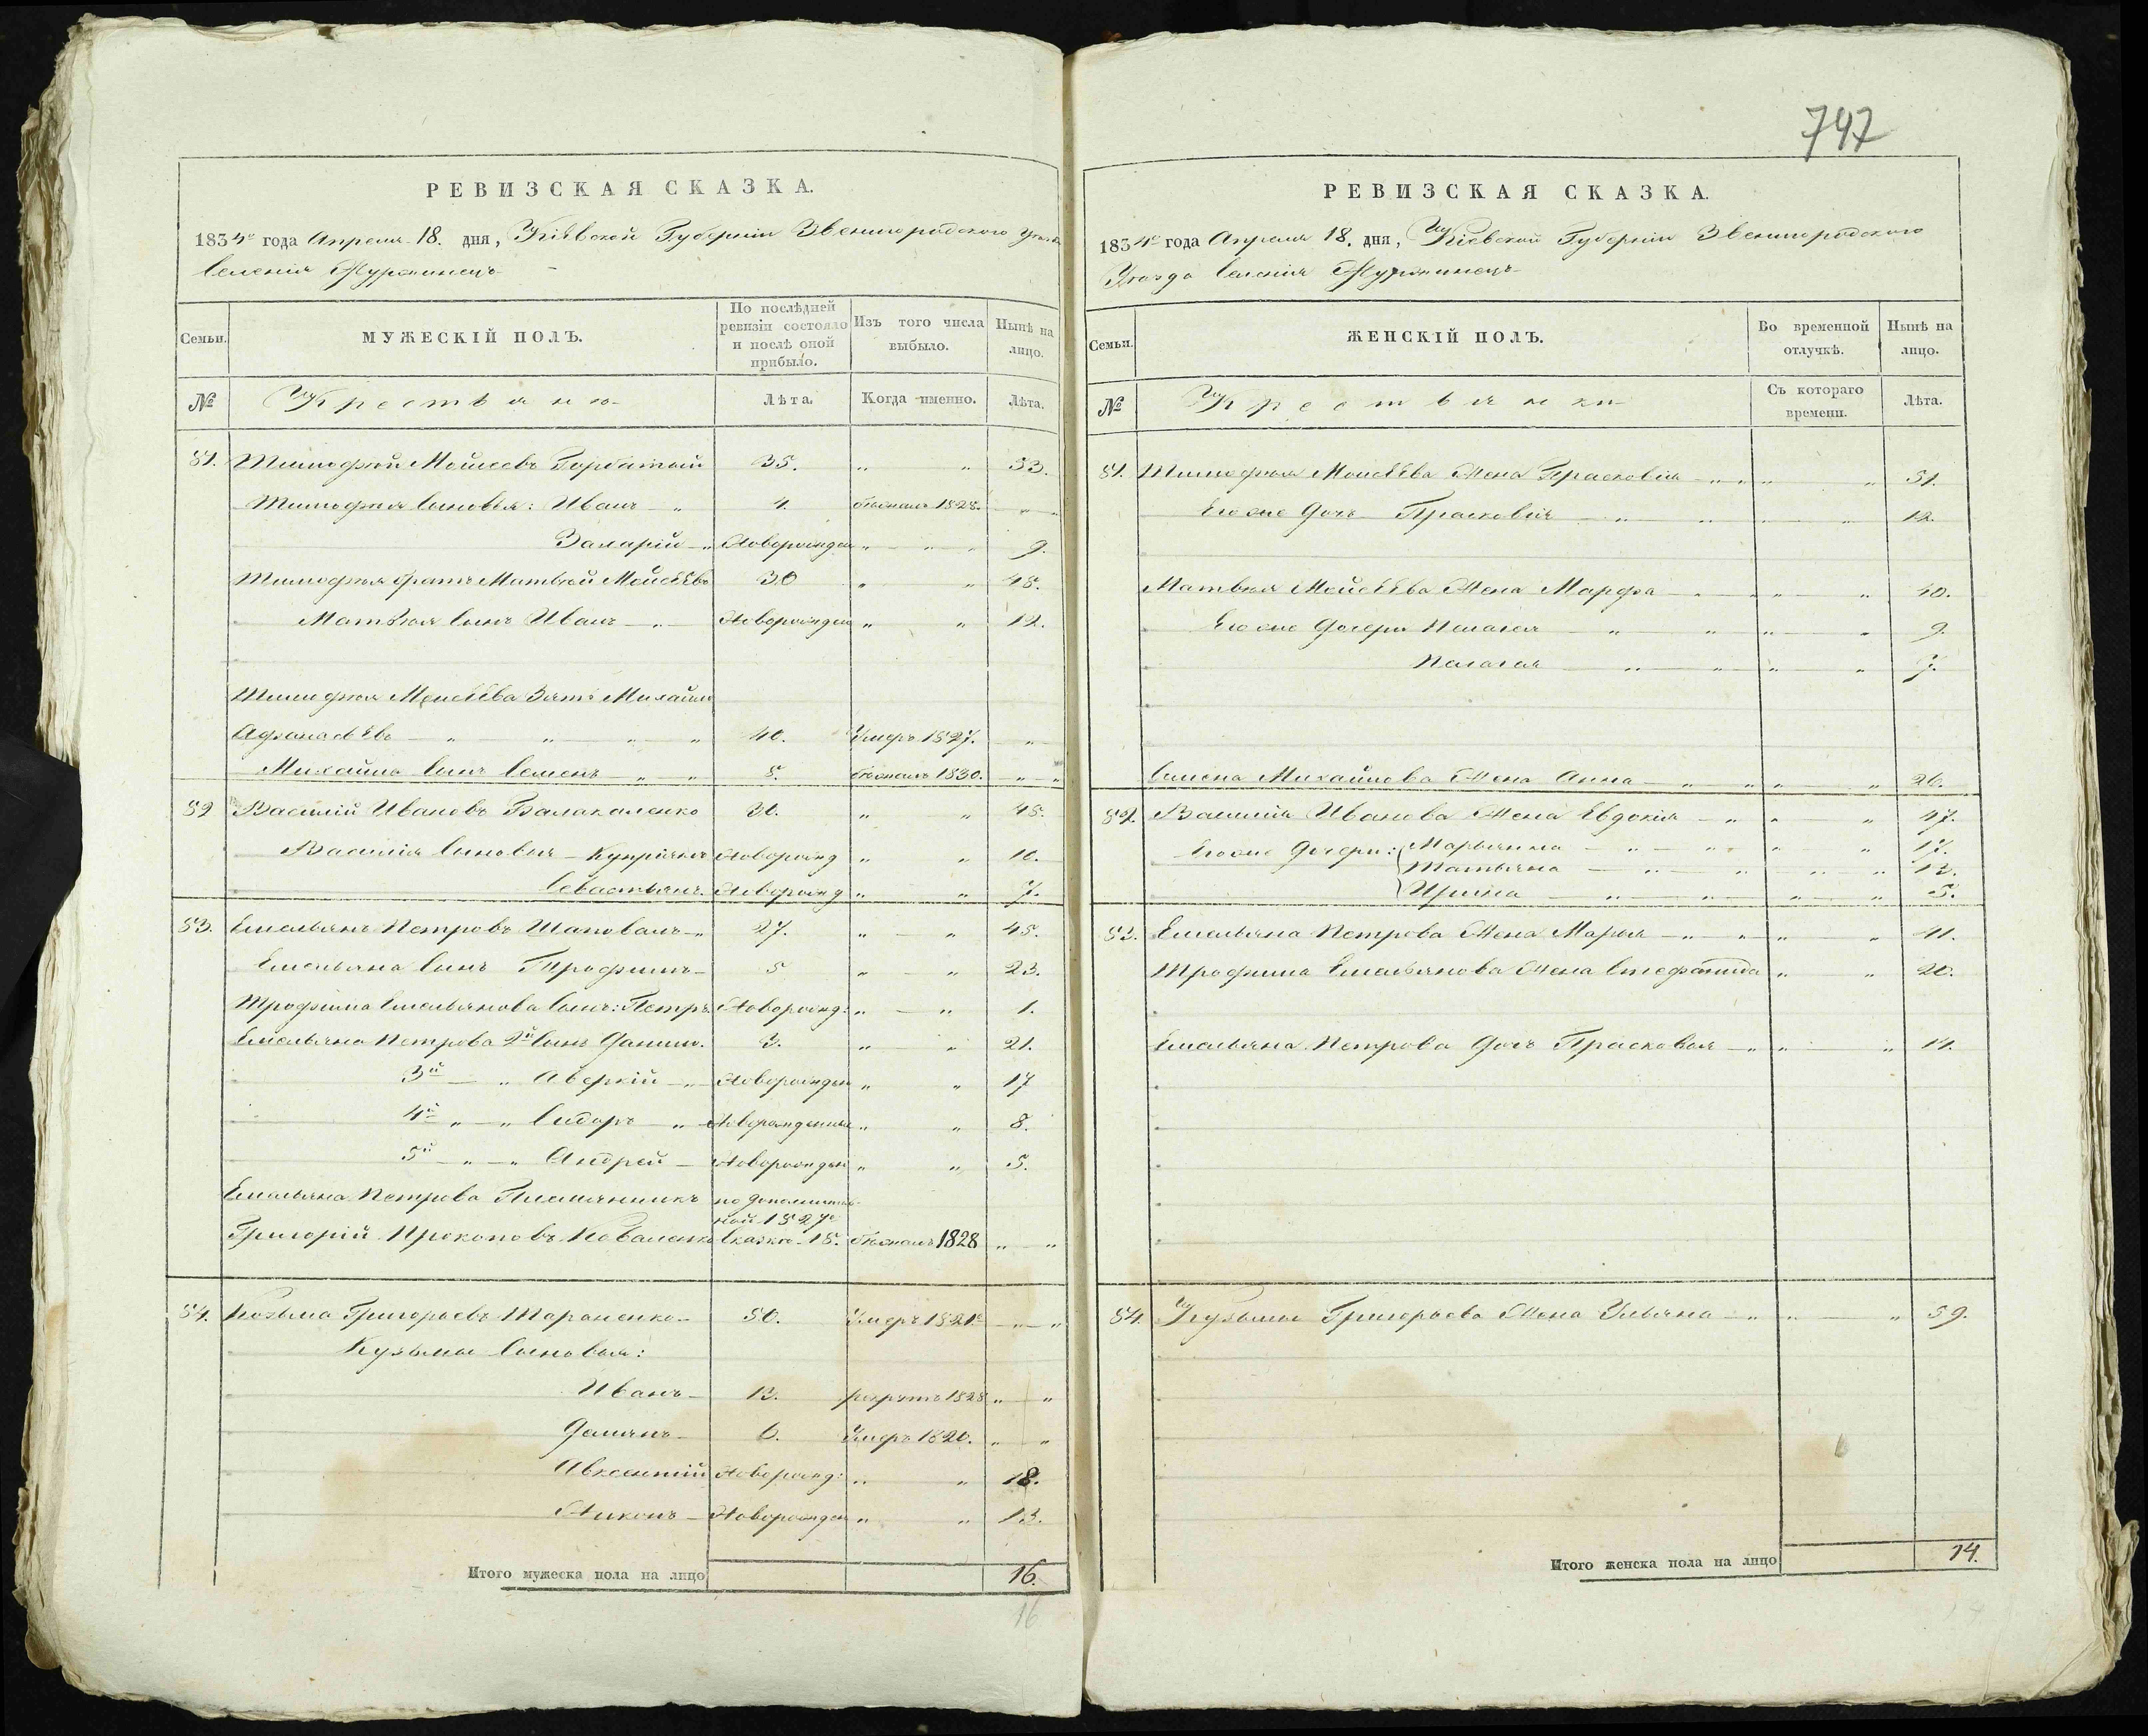 747
РЕВИЗСКАЯ СКАЗКА.
1834г года Апреля 18. дня, Кіевской Губерніи Звенигородского Уезда
Селенія Журжинецъ
Семьи.
МУЖЕСКІЙ ПОЛЪ.
По послѣдней ревизіи состояло и послѣ оной прибыло.
Изъ того числа выбыло.
Нынѣ на лицо.
№
Крестьяне
Лѣта.
Когда именно.
Лѣта.
51. Тимофей Моисеевъ Горбатый 35. „ „ 53.
Тимофея Сыновья: Иванъ „ 4. бежалъ 1828. „ „
Захарій „ Новорожден „ „ „ 9.
Тимофея братъ Матвей Моисѣевъ 30 „ „ 48.
Матвея Сынъ Иванъ „ Новорожден „ „ 12.
Тимофея Моисѣева Зять Михайло
Афанасьѣвъ „ „ „ „ 40. Умеръ 1827. „
Михайла Сынъ Семенъ „ „ 8. бежалъ 1830. „ „
52 Василій Ивановъ Балакаленко 30. „ „ 48.
Василія Сыновья Купріянъ Новорожд „ „ 10.
Севастьянъ. Новорожд „ „ 7.
53. Емельянъ Петровъ Шаповалъ „ 27. „ „ 45.
Емельяна Сынъ Трофимъ 5 „ „ 23.
Трофима Емельянова Сынъ: Петръ Новорожд: „ „ 1.
Емельяна Петрова 2й Сынъ Данило. 3. „ „ 21.
3й „ Аверкій „ Новорожден „ „ 17
4й „ „ Сидоръ „ Новорожденны „ „ 8.
5й „ „ Андрей Новорожден „ „ 5.
Емельяна Петрова Племянникъ по дополнитель-
ной 1827г
Григорій Прокоповъ Коваленко Сказке 18. бежалъ 1828 „ „
54. Козьма Григорьевъ Тараненко 50. Умеръ 1821г „ „
Кузьмы Сыновья:
Иванъ 13. рекрутъ 1828 „ „
Демянъ 6. Умеръ 1820. „ „
Авксентий Новорожд: „ „ 18.
Никонъ Новорожден „ „ 13.
Итого мужеска пола на лицо 16.
16
РЕВИЗСКАЯ СКАЗКА.
1834г года Апреля 18. дня, Кіевской Губерніи Звенигородского
Уезда Селенія Журжинецъ
Семьи.
ЖЕНСКІЙ ПОЛЪ.
Во временной отлучкѣ.
Нынѣ на лицо.
№
Крестьянки
Съ котораго времени.
Лѣта.
51. Тимофея Моисѣева Жена Прасковія „ „ „ „ 51.
Его же Дочь Прасковія „ „ „ „ 12.
Матвея Моисѣева Жена Марфа „ „ „ „ 40.
Его же Дочери Пелагея „ „ „ „ 9.
Пелагея „ „ „ „ 7.
Семена Михайлова Жена Анна „ „ „ „ 26.
52. Василія Иванова Жена Евдокія „ „ „ 47.
Его же Дочери: Марьянна „ „ „ „ 17.
Татьяна „ „ „ „ 12.
Ирина „ „ „ „ 5.
53. Емельяна Петрова Жена Марья „ „ „ „ 41.
Трофима Емельянова Жена Стефанида „ „ 20.
Емельяна Петрова Дочь Прасковья „ „ „ 11.
54. Кузьмы Григорьева Жена Ульяна „ „ „ 59.
Итого женска пола на лицо 14.